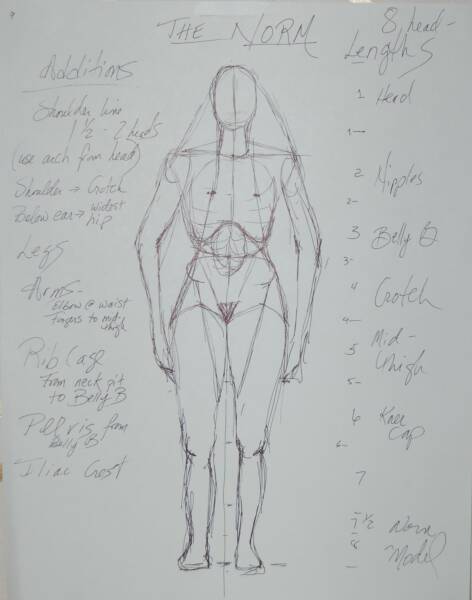 THE NORM
8 head-
Lengths
Additions
Shoulder line
1 ½ - 2 heads
(use arch from head)
Shoulder → Crotch
Below ear → widest
hip
Legs
Arms-
Elbow @ waist
Fingers to mid-
thigh
Rib Cage
From neck pit
to Belly B
Pelvis from
Belly B
Iliac Crest
1 Head
1-
2 Nipples
2-
3 Belly B
3-
4 Crotch
4-
5 Mid-
thigh
5-
6 Knee
Cap
6-
7
7 ½ Norm
8 Model